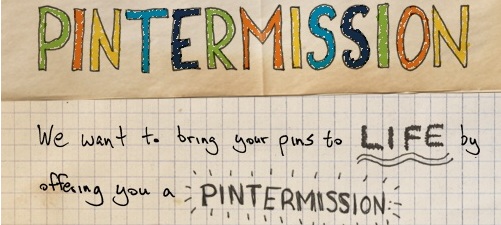 PINTERMISSION
We want to bring your pins to LIFE by
offering you a PINTERMISSION